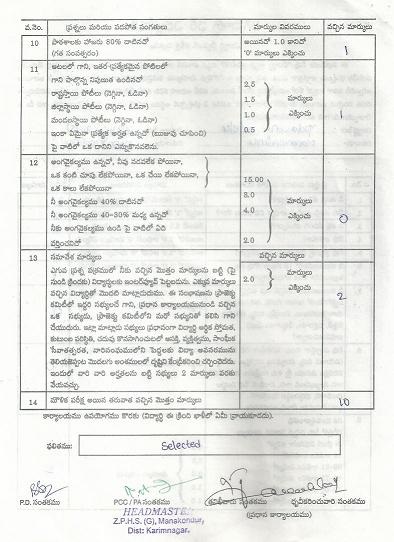 వ.నెం. ప్రశ్నలు మరియు పదపోత సంగతులు మార్కుల వివరములు వచ్చిన మార్కులు
10 పాఠశాలకు హాజరు 80% దాటినచో అయినచో 1.0 కానిచో
(గత సంవత్సరం) '0' మార్కులు ఎక్కించు 1
11 ఆటలలో గాని, ఇతర ప్రత్యేకమైన పోటీలలో
గాని పాల్గొన్న నిపుణత ఉండినచో
రాష్ట్రస్థాయి పోటీలు (నెగ్గినా, ఓడినా) 2.5
జిల్లాస్థాయి పోటీలు (నెగ్గినా, ఓడినా) 1.5 మార్కులు
మండలస్థాయి పోటీలు (నెగ్గినా, ఓడినా) 1.0 ఎక్కించు 1
ఇంకా ఏమైనా ప్రత్యేక అర్హత ఉన్నచో (ఋజువు చూపించి) 0.5
పై వాటిలో ఒక దానిని ఎన్నుకొనవలెను.
12 అంగవైకల్యము ఉన్నచో, నీవు నడవలేక పోయినా,
ఒక కంటి చూపు లేకపోయినా, ఒక చేయి లేకపోయినా,
ఒక కాలు లేకపోయినా 15.00
నీ అంగవైకల్యము 40% దాటినచో 8.0 మార్కులు
నీ అంగవైకల్యము 40-30% మధ్య ఉన్నచో 4.0 ఎక్కించు 0
నీకు అంగవైకల్యము ఉండి పై వాటిలో ఏది
వర్తించనిచో 2.0
13 సమావేశ మార్కులు వచ్చిన మార్కులు
ఎగువ ప్రశ్న పత్రములో నీకు వచ్చిన మొత్తం మార్కులను బట్టి (పై
నుండి క్రిందకు) విద్యార్థులకు ఇంటర్వ్యూస్ పెట్టబడును. ఎక్కువ మార్కులు 2.0 మార్కులు
వచ్చిన విద్యార్థితో మొదట మాట్లాడుదుము. ఈ సంభాషణను ప్రాజెక్టు ఎక్కించు 2
కమిటీలో ఇద్దరి సభ్యులచే గాని, ప్రధాన కార్యాలయమునుండి వచ్చిన
ఒక సభ్యుడు, ప్రాజెక్టు కమిటీలోని మరో సభ్యునితో కలిసి గాని
చేయుదురు. ఇట్లా మాట్లాడు సభ్యులు ప్రధానంగా విద్యార్థి ఆర్థిక స్తోమత,
కుటుంబ పరిస్థితి, చదువు కొనసాగించుటలో ఆసక్తి, వ్యక్తిత్వము, సాంఘిక
ఇందులో వారి వారి అర్హతలను బట్టి సభ్యులు 2 మార్కులు వరకు
వేయవచ్చు.
14 మౌళిక పరీక్ష అయిన తరువాత వచ్చిన మొత్తం మార్కులు 10
కార్యాలయము ఉపయోగము కొరకు (విద్యార్థి ఈ క్రింది ఖాళీలో ఏమీ వ్రాయకూడదు).
ఫలితము: Selected
P.D. సంతకము PCC / PA సంతకము సంతకము ధృవీకరించువారి సంతకము
(ప్రధాన కార్యాలయము)
HEADMASTER
Z.P.H.S. (G), Manakondur,
Dist: Karimnagar.